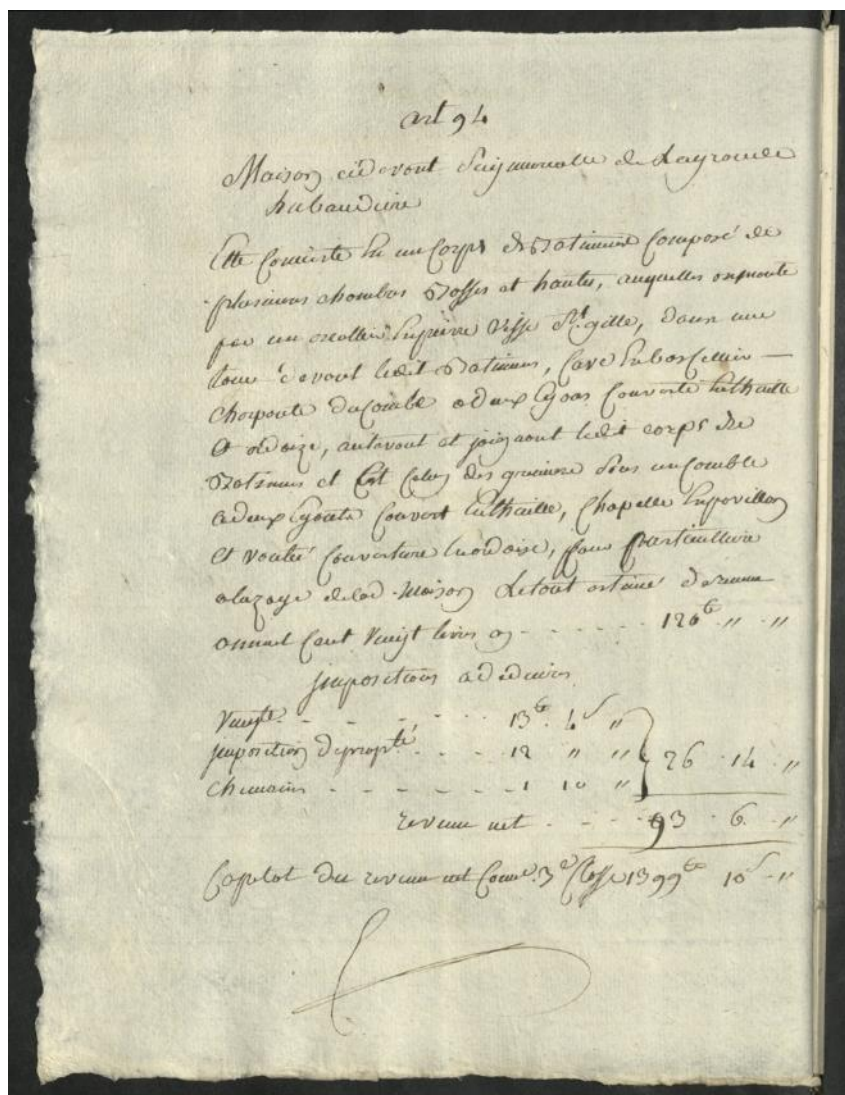 art 94
Maison cidevant Seigneurialle de Layraude
hubaudiere
Elle Consiste En un Corps de Batiment Composé de
plusieurs chambres Basses et hautes, auxquelles on monte
par un escallier En pierre Visse St. gille, dans une
tour devant ledit Batiment, Cave En bas Cellier —
Charpente du Comble a deux Egouts Couverte En thuille
Et ardoize, autravant et joignant ledit corps de
Batiment et Est Celuy des greniers Sous un Comble
a deux Egouts Couvert En thuille, Chapelle En pavillon
Et voutée Couverture En ardoise, Cour particulliere
a l'uzage de lad. Maison Le tout estimé de revenu
annuel Cent Vingt livres cy - - - - - 120 tt " "
Impositions a déduire
Vingte. - - - - - - 13 tt 4 s "
Imposition de propté - - - - 12 " "
Chemains - - - - - - 1 10 " } 26 . 14 . "
revenu net - - - - - 93 . 6 . "
Capital du revenu net Comme 3e Classe 1399 tt 10 s "